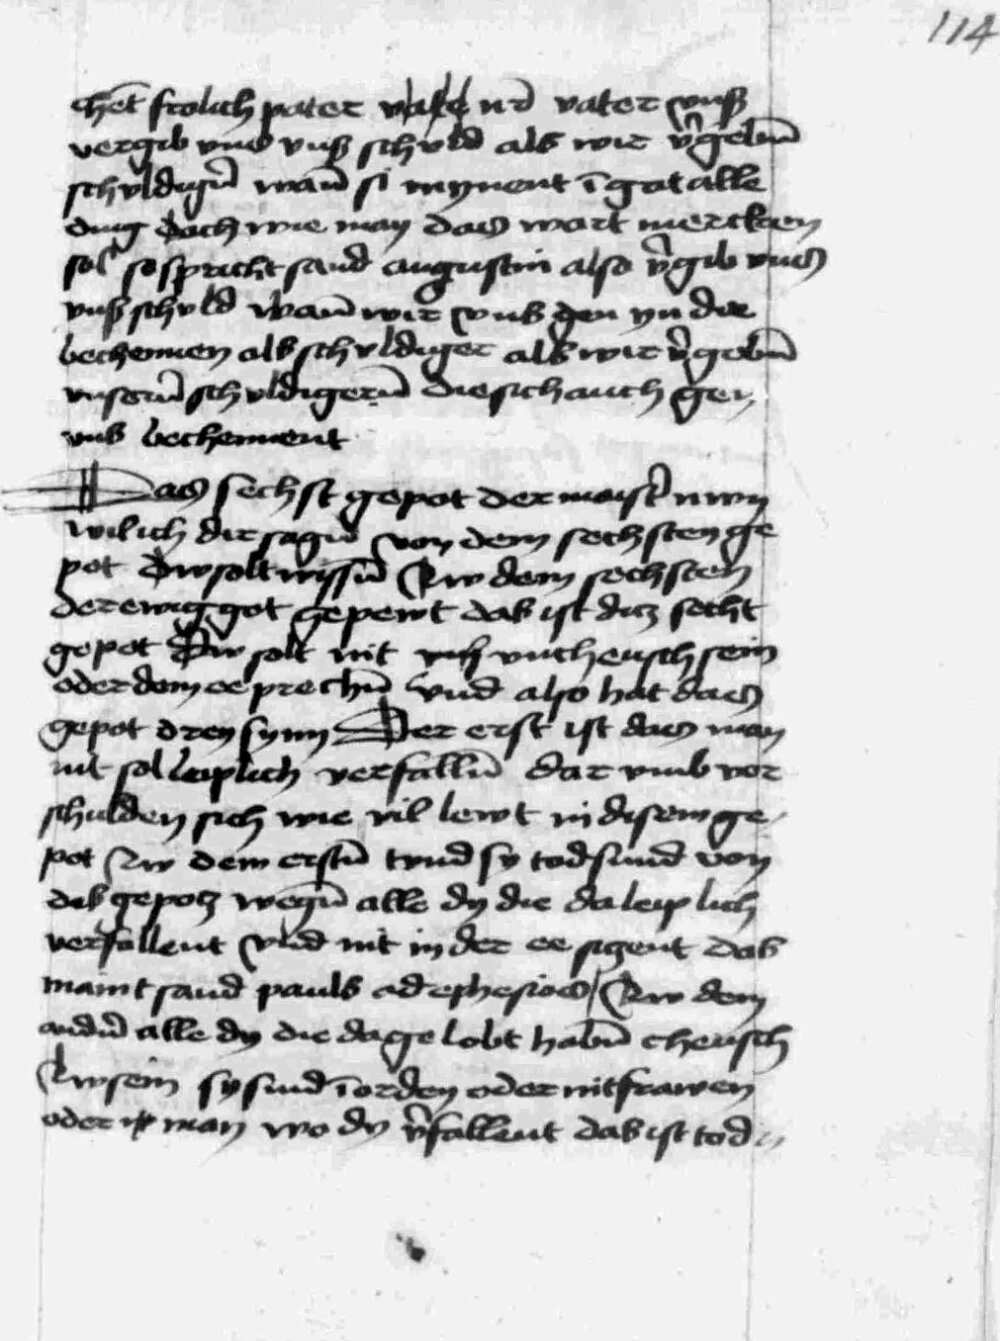 114
chēt frolich pater vate nr̄ vater vnß
vergib vns vnß schuld als wir v̄gebn̄
schuldigr̄ wan̄ si mynent ī got alle
ding doch wie man das wort mercken
sol so spricht sand augustin also v̄gib vnes
vnß schuld wan̄ wir vns gen yn die
bechennen als schuldiger als wir v̄gebn̄
vnsern̄ schuldigern̄ die sich auch gen
vns bechennent
Das sechst gepot der maist̄ nwn
wil ich dir sagn̄ von dem sechsten ge
pot Dw solt wissn̄ Zw dem sechsten
der ewig got gepewt das ist diz secht
gepot Dw solt nit vncheusch sein
oder dein ee prechn̄ vnd also hat das
gepot drey synn Der erst ist das man
nit sol leiplich verfalln̄ dar vmb ver
schulden sich wie vil lewt in disem ge
pot Zw dem erstn̄ tund sy todsund von
dis gepotz wegn̄ alle dy die da leiplich
verfallent vnd nit in der ee sizent das
maint sand pauls ad ephesios Zw dem
andn̄ alle dy die da gelobt habn̄ cheusch
Zw sein sy sind ī orden oder nit frawen
oder man wo dy v̄fallent das ist tod